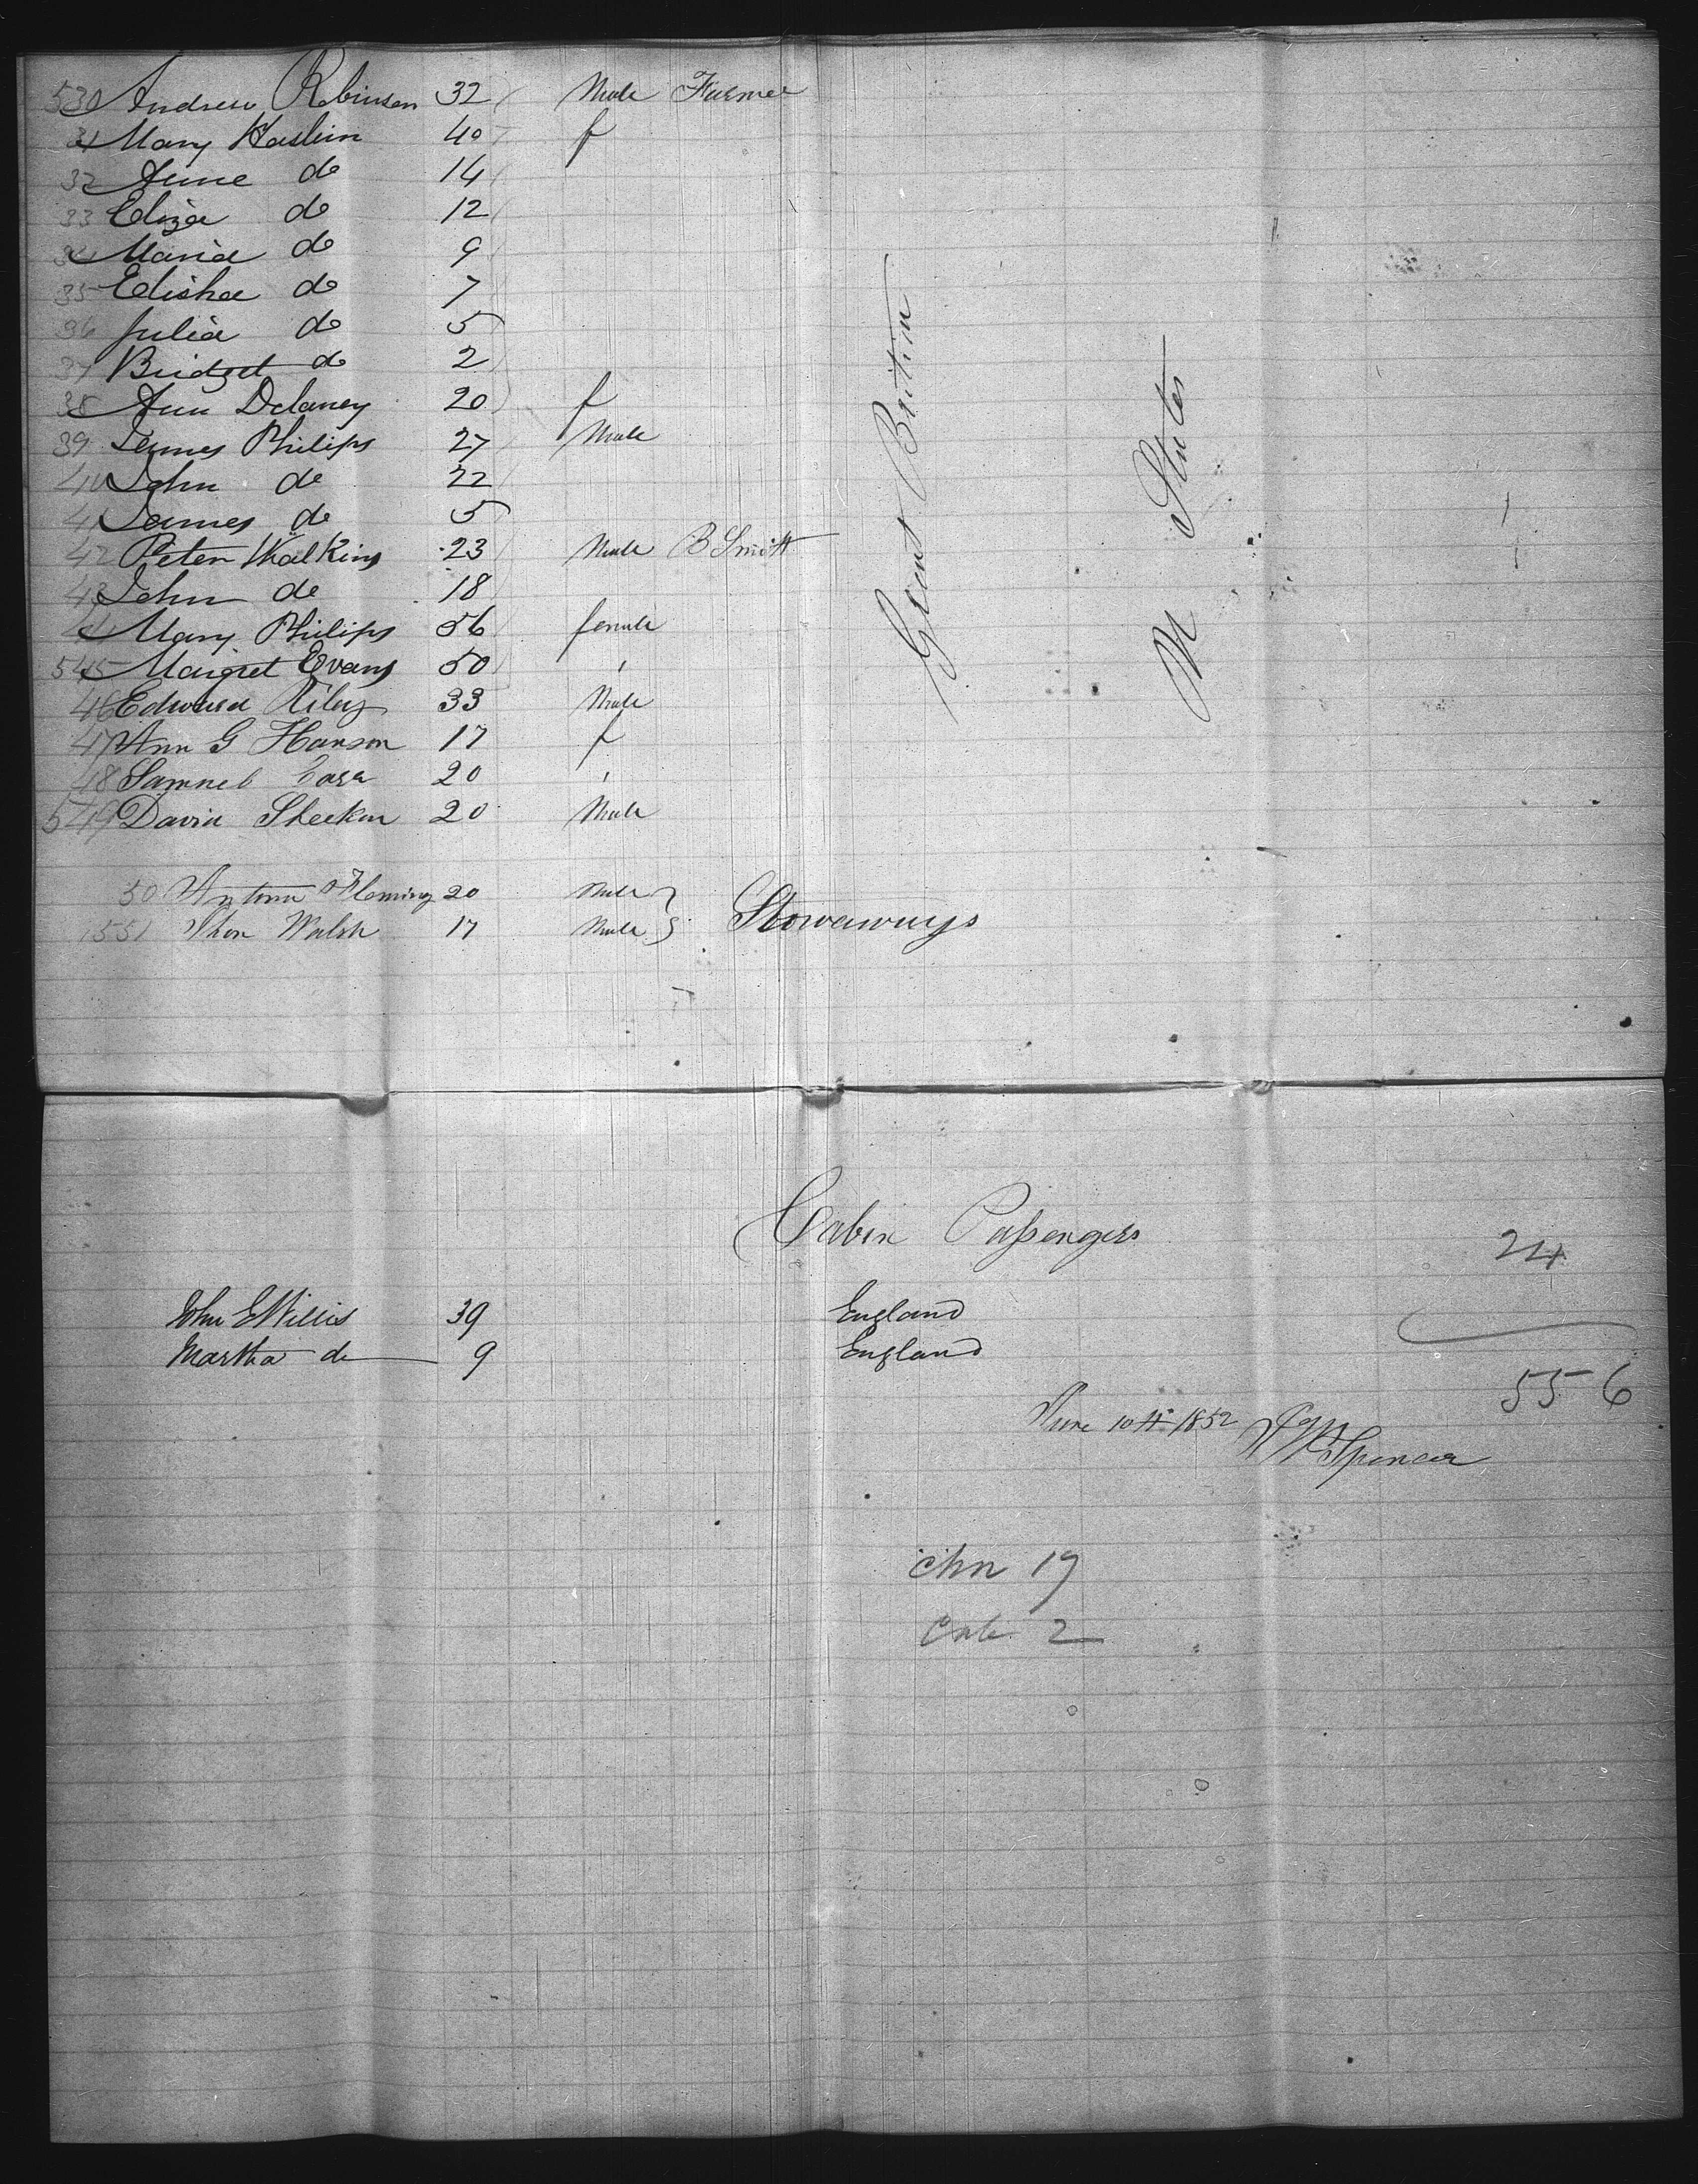 530 Andrew Robinson 32 Male Farmer
31 Mary Haslim 40 f
32 Anne do 14
33 Eliza do 12
34 Maria do 9
35 Elisha do 7
36 Julia do 5
37 Bridget do 2
38 Ann Delaney 20 f
39 James Philips 27 Male
40 John do 22
41 James do 5
42 Peter Walkins 23 Male B Smith
43 John do 18
44 Mary Philips 56 female
545 Margret Evans 50 "
46 Edward Riley 33 Male
47 Ann G Hanson 17 f
48 Samuel 20 "
549 David Sheekin 20 Male
Great Britain
U States
50 Fleming 20 Male
551 Jhon Walsh 17 Male } Stowaways
Cabin Passengers
24
John E Willis 39 England
Martha do 9 England
556
June 10th 1852 Spencer
chn 19
Cab 2